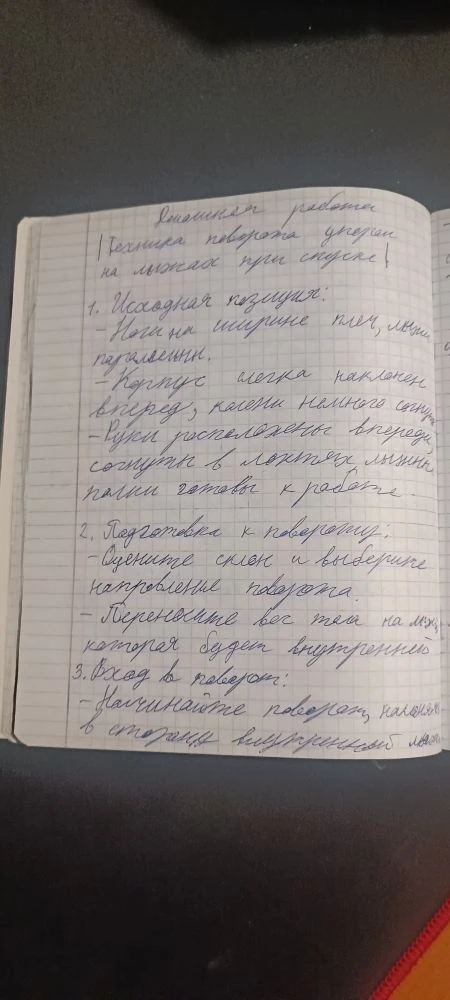 Домашняя работа
|Техника поворота упором
на лыжах при спуске|
1. Исходная позиция:
- Ноги на ширине плеч, лыжи
параллельны.
- Корпус слегка наклонен
вперед, колени немного согнуты
- Руки расположены впереди,
согнуты в локтях, лыжные
палки готовы к работе.
2. Подготовка к повороту:
- Оцените склон и выберите
направление поворота.
- Переносите вес тела на лыжу,
которая будет внутренней
3. Вход в поворот:
- Начинайте поворот,
в сторону внутренней лыжи